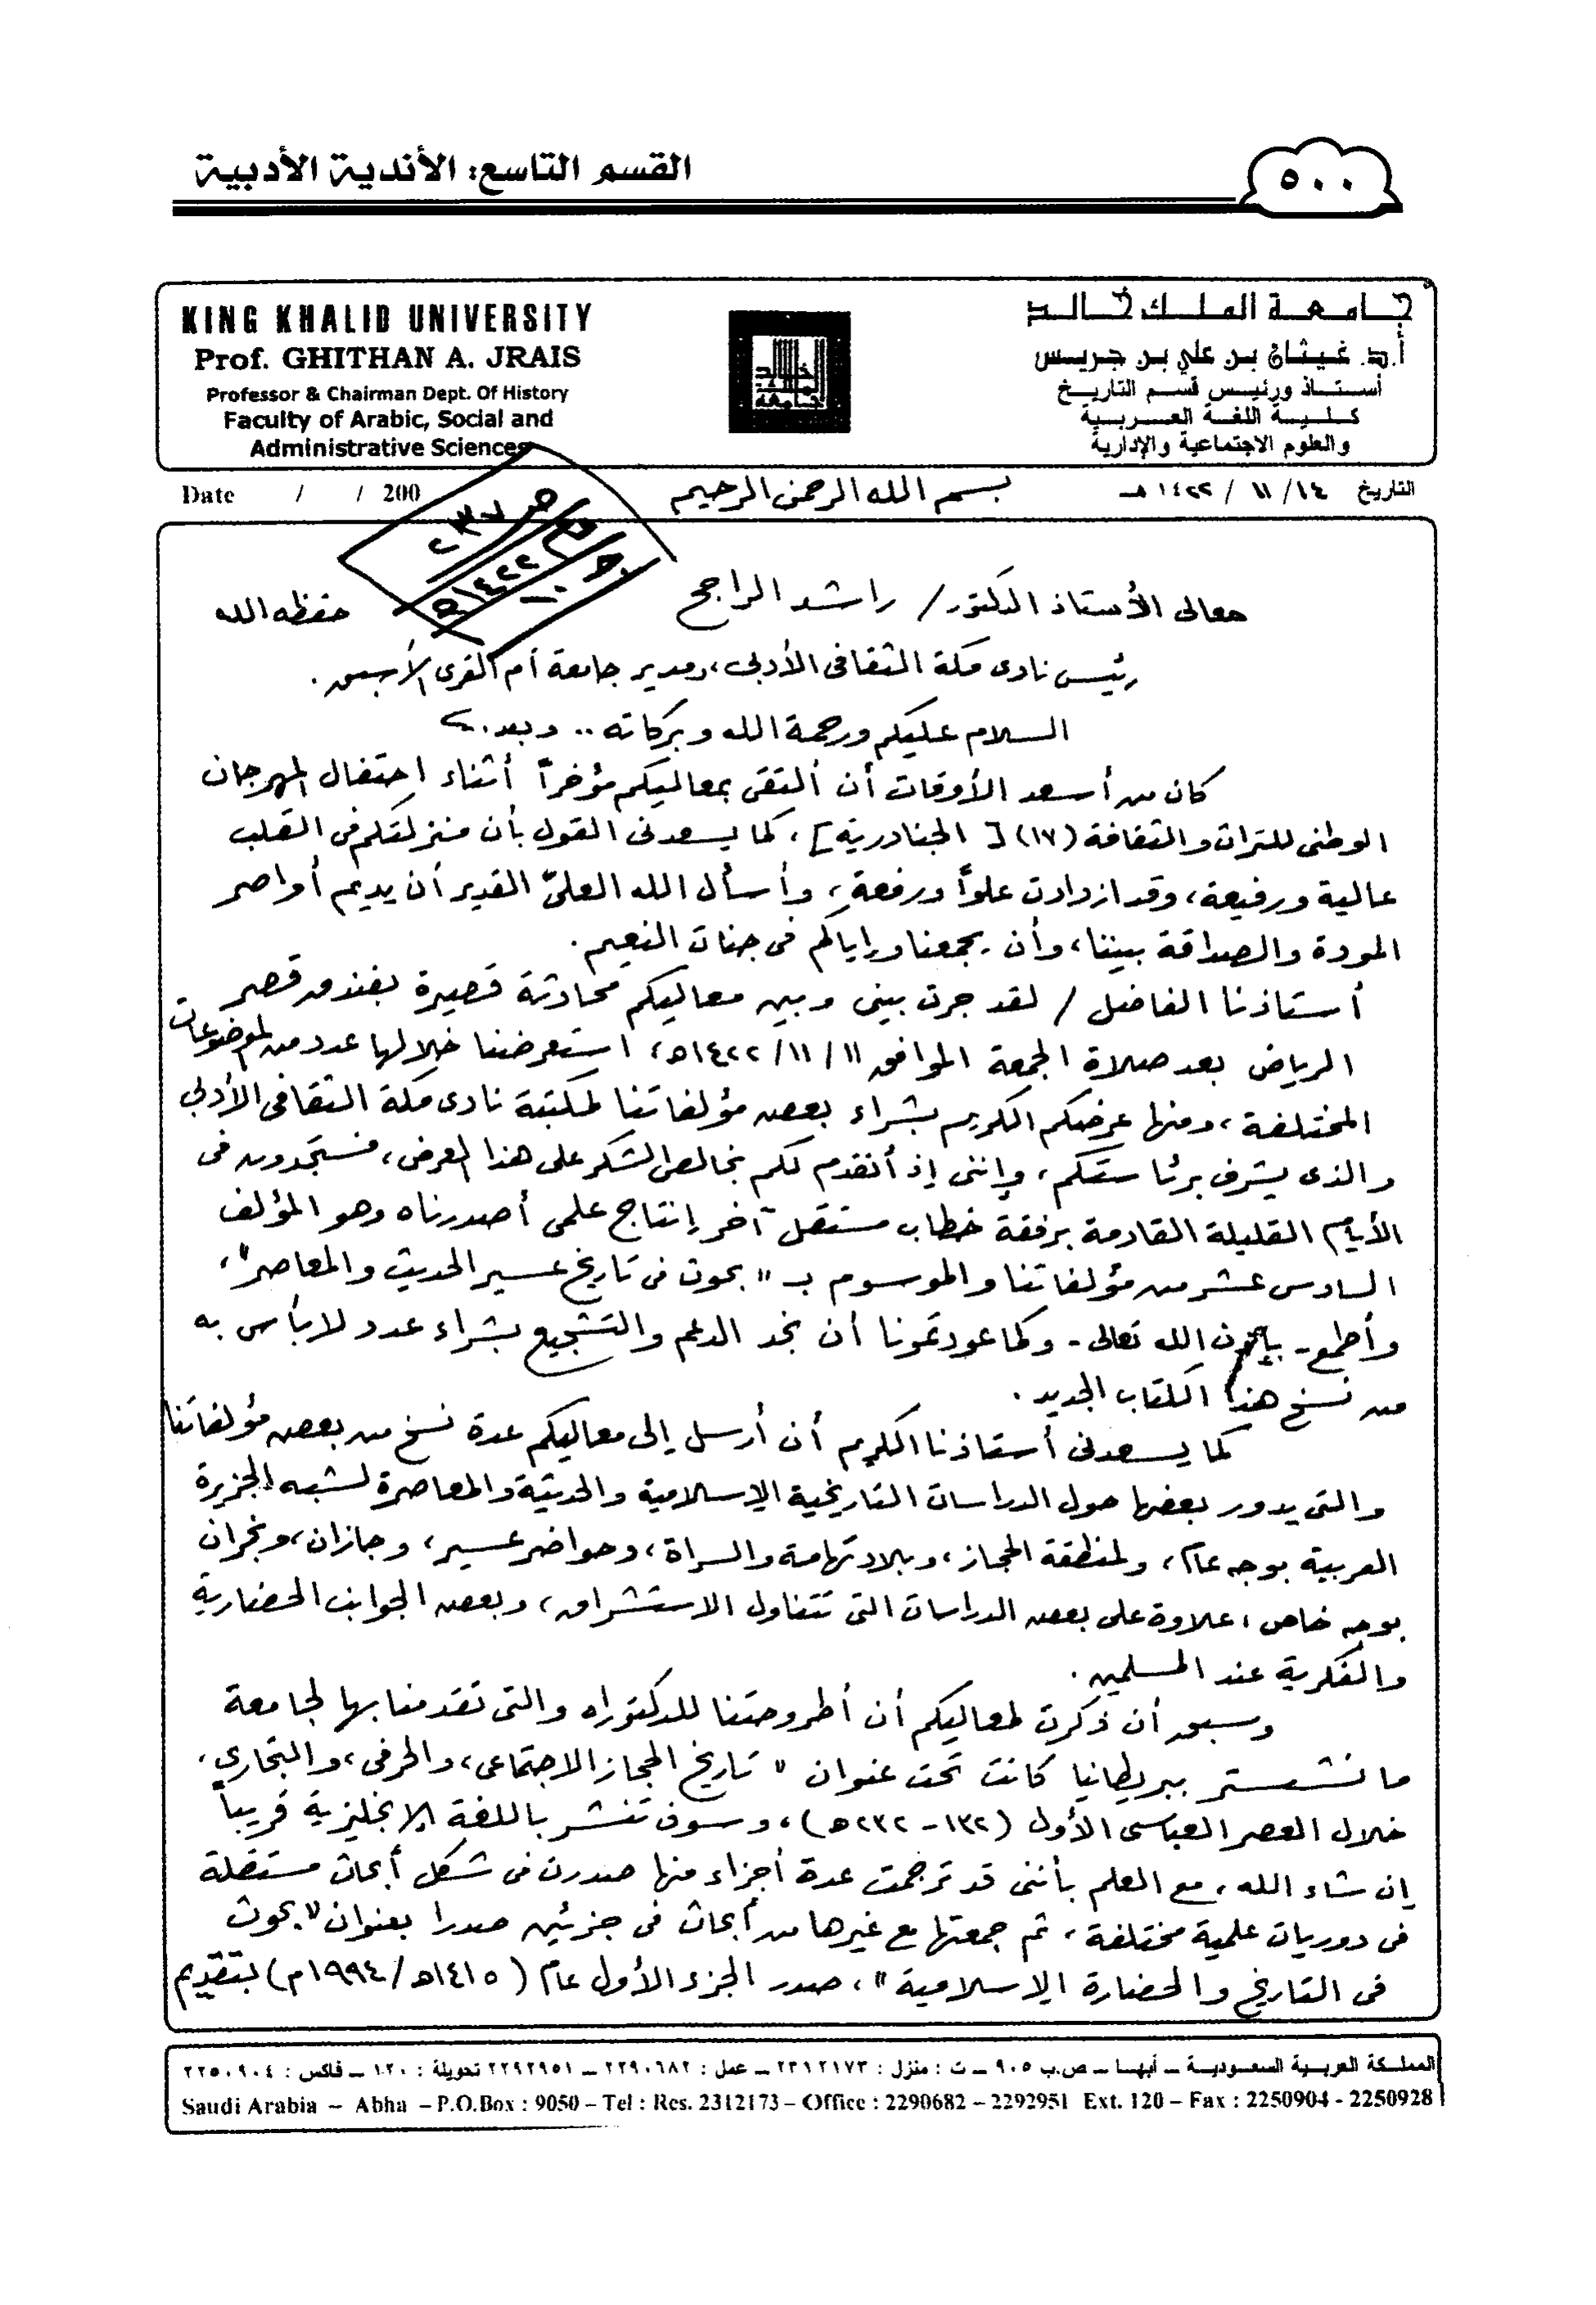 القسم التاسع: الأندية الأدبية
٥٠٠
KING KHALID UNIVERSITY
Prof. GHITHAN A. JRAIS
Professor & Chairman Dept. Of History
Faculty of Arabic, Social and
Administrative Sciences
جامعة الملك خالد
أ.د. غيثان بن علي بن جريس
أستاذ ورئيس قسم التاريخ
كلية اللغة العربية
والعلوم الاجتماعية والإدارية
Date / / 200
بسم الله الرحمن الرحيم
التاريخ ١٤ / ١١ / ١٤٢٢ هـ
معالي الأستاذ الدكتور / راشد الراجح حفظه الله
رئيس نادي مكة الثقافي الأدبي، ومدير جامعة أم القرى الأسبق.
السلام عليكم ورحمة الله وبركاته .. وبعد.
كان من أسعد الأوقات أن ألتقي بمعاليكم مؤخراً أثناء احتفال المهرجان
الوطني للتراث والثقافة (١٧) [الجنادرية]، كما يسعدني القول بأن منزلتكم في القلب
عالية ورفيعة، وقد ازدادت علواً ورفعة، وأسأل الله العليّ القدير أن يديم أواصر
المودة والصداقة بيننا، وأن يجمعنا وإياكم في جنات النعيم.
أستاذنا الفاضل / لقد جرت بيني وبين معاليكم محادثة قصيرة بفندق قصر
الرياض بعد صلاة الجمعة الموافق ١١ / ١١ / ١٤٢٢هـ، استعرضنا خلالها عدد من الموضوعات
المختلفة، ومنها عرضكم الكريم بشراء بعض مؤلفاتنا لمكتبة نادي مكة الثقافي الأدبي
والذي يشرف برئاستكم، وإنني إذ أتقدم لكم بخالص الشكر على هذا العرض، فستجدون في
الأيام القليلة القادمة برفقة خطاب مستقل آخر إنتاج علمي أصدرناه وهو المؤلف
السادس عشر من مؤلفاتنا والموسوم بـ "بحوث في تاريخ عسير الحديث والمعاصر"،
وأطمع - بإذن الله تعالى - وكما عودتمونا أن نجد الدعم والتشجيع بشراء عدد لا بأس به
من نسخ هذا الكتاب الجديد.
كما يسعدني أستاذنا الكريم أن أرسل إلى معاليكم عدة نسخ من بعض مؤلفاتنا
والتي يدور بعضها حول الدراسات التاريخية الإسلامية والحديثة والمعاصرة لشبه الجزيرة
العربية بوجه عام، ولمنطقة الحجاز، وبلاد تهامة والسراة، وحواضر عسير، وجازان، ونجران
بوجه خاص، علاوة على بعض الدراسات التي تتناول الاستشراق، وبعض الجوانب الحضارية
والفكرية عند المسلمين.
وسبق أن ذكرت لمعاليكم أن أطروحتنا للدكتوراه والتي تقدمنا بها لجامعة
مانشستر ببريطانيا كانت تحت عنوان "تاريخ الحجاز الاجتماعي، والحرفي، والتجاري،
خلال العصر العباسي الأول (١٣٢ - ٢٣٢هـ)، وسوف تنشر باللغة الإنجليزية قريباً
إن شاء الله، مع العلم بأنني قد ترجمت عدة أجزاء منها صدرت في شكل أبحاث مستقلة
في دوريات علمية مختلفة، ثم جمعتها مع غيرها من أبحاث في جزئين صدرا بعنوان "بحوث
في التاريخ والحضارة الإسلامية"، صدر الجزء الأول عام (١٤١٥هـ/١٩٩٤م) بتقديم
المملكة العربية السعودية – أبها – ص.ب ٩٠٥ – ت : منزل : ٢٣١٢١٧٣ – عمل : ٢٢٩٠٦٨٢ – ٢٢٩٢٩٥١ تحويلة : ١٢٠ – فاكس : ٢٢٥٠٩٠٤
Saudi Arabia – Abha – P.O.Box : 9050 – Tel : Res. 2312173 – Office : 2290682 – 2292951 Ext. 120 – Fax : 2250904 - 2250928